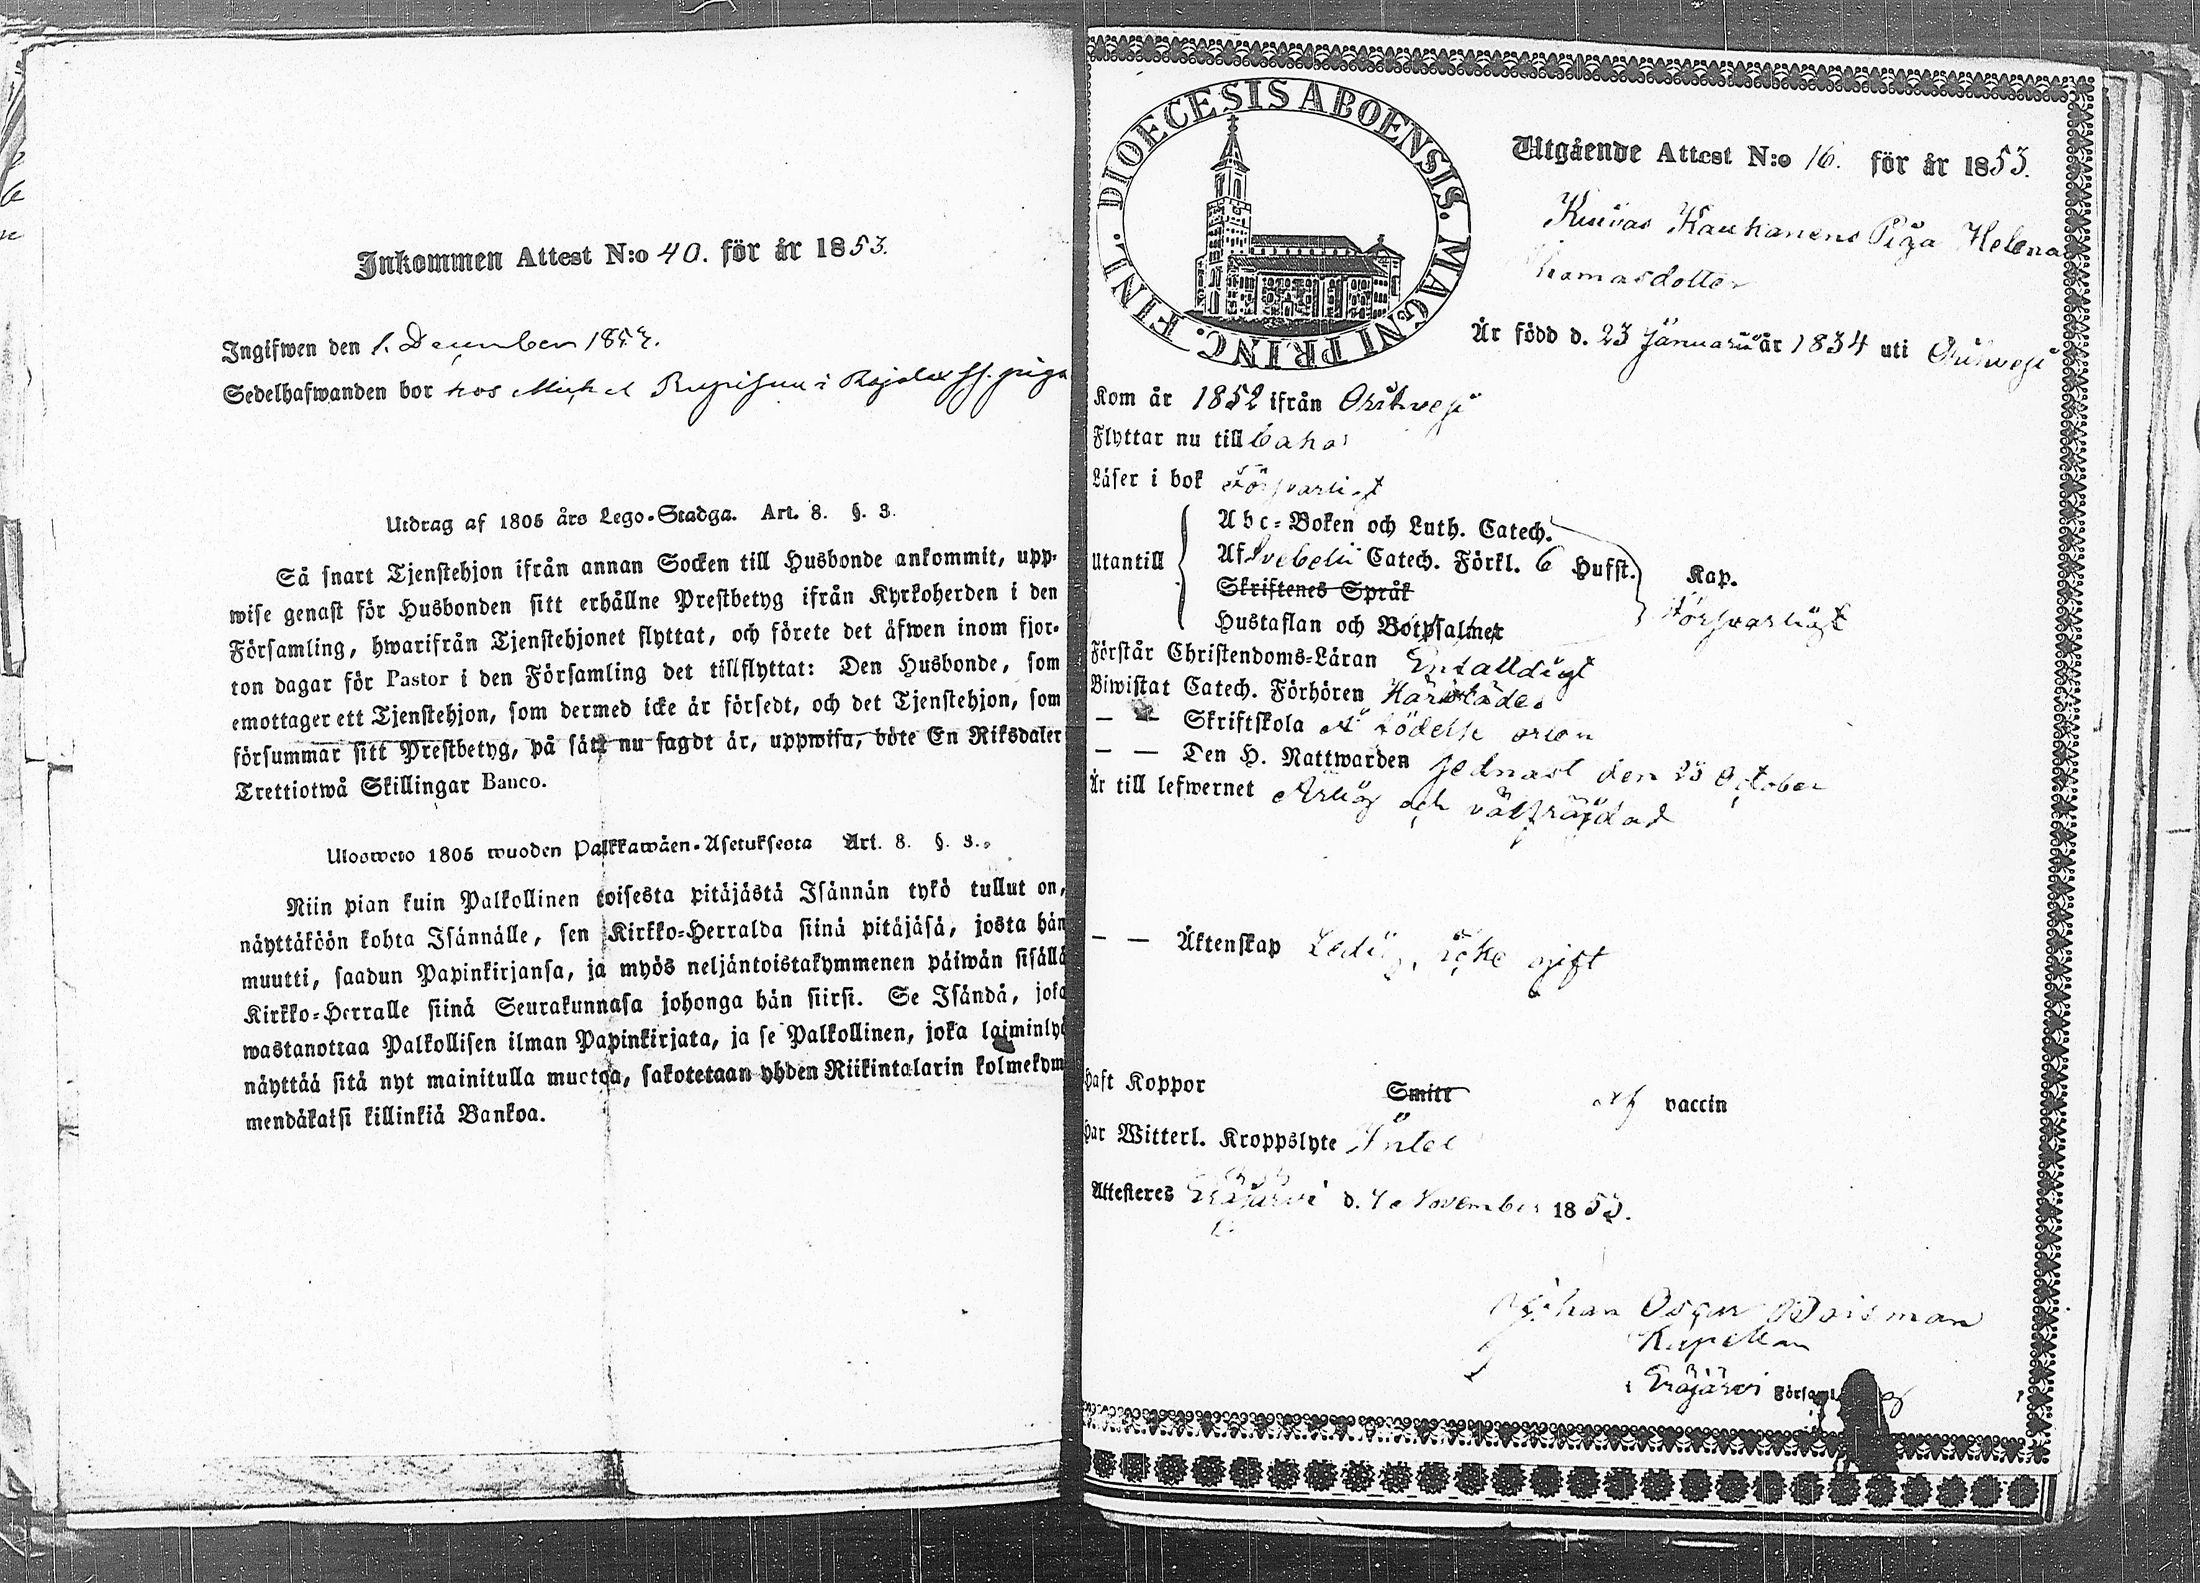 Inkommen Attest N:o 40. för år 1853.
Ingifwen den 1. December 1853.
Sedelhafwanden bor hos Michel i piga
Utdrag af 1805 års Lego-Stadga. Art. 8. §. 3.
Så snart Tjenstehjon ifrån annan Socken till Husbonde ankommit, upp-
wise genast för Husbonden sitt erhållne Prestbetyg ifrån Kyrkoherden i den
Församling, hwarifrån Tjenstehjonet flyttat, och förete det äfwen inom fjor-
ton dagar för Pastor i den Församling det tillflyttat: Den Husbonde, som
emottager ett Tjenstehjon, som dermed icke är försedt, och det Tjenstehjon, som
försummar sitt Prestbetyg, på sätt nu sagdt är, uppwisa, böte En Riksdaler
Trettiotwå Skillingar Banco.
Ulosweto 1805 wuoden Palkkawäen-Asetuksesta Art. 8. §. 3.
Niin pian kuin Palkollinen toisesta pitäjästä Isännän tykö tullut on,
näyttäköön kohta Isännälle, sen Kirkko-Herralda siinä pitäjäsä, josta hän
muutti, saadun Papinkirjansa, ja myös neljäntoistakymmenen päiwän sisällä
Kirkko-Herralle siinä Seurakunnasa johonga hän siirsi. Se Isändä, joka
wastanottaa Palkollisen ilman Papinkirjata, ja se Palkollinen, joka laiminlyö
näyttää sitä nyt mainitulla muotoa, sakotetaan yhden Riikintalarin kolmekym
mendäkaksi killinkiä Bankoa.
DIOECESIS ABOENSIS. MAGNI PRINC. FINL.
Utgående Attest N:o 16. för år 1853.
Kauhanens Piga Helena
Thomasdotter
Är född d. 23 Januarii år 1834 uti Orihvesi
Kom år 1852 ifrån Orihvesi
Flyttar nu till
Läser i bok Försvarligt
Utantill
Abc-Boken och Luth. Catech.
Af Svebelii Catech. Förkl. 6 Hufst. Kap.
Skriftenes Språk
Hustaflan och Botpsalmer
Försvarligt
Förstår Christendoms-Läran Enfalldigt
Biwistat Catech. Förhören Härstädes
— — Skriftskola å födelse orten
— — Den H. Nattwarden sednast den 23 October
Är till lefwernet Ärlig och välfräjdad
— — Äktenskap Ledig, icke gift
Haft Koppor Smitt af vaccin
Har Witterl. Kroppslyte Intet
Attesteres Eräjärvi d. November 1853.
Johan Oscar Roisman
Kapellan
i Eräjärvi Församl.